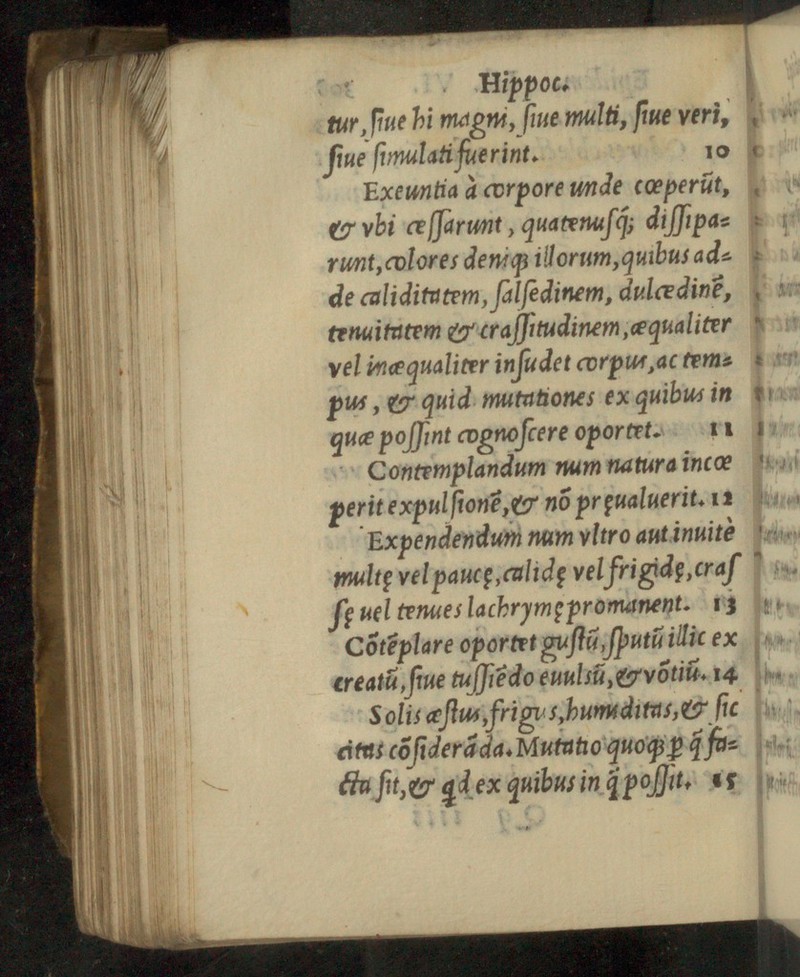 Hippoc.
tur, ſiue hi magni, ſiue multi, ſiue veri,
ſiue ſimulati fuerint. 10
Exeuntia à corpore unde cœperūt,
& vbi ceſſarunt, quatenuſq; diſſipa=
runt, colores deniq; illorum, quibus ad=
de caliditatem, ſalſedinem, dulcedinē,
tenuitatem & craſſitudinem, æqualiter
vel inæqualiter inſudet corpus, ac tem=
pus, & quid mutationes ex quibus in
quæ poſſint cognoſcere oportet. 11
Contemplandum num natura incœ
perit expulſionē, & nō pręualuerit. 12
Expendendum num vltro aut inuitè
multę vel paucę, calidę vel frigidę, craſ
ſę uel tenues lachrymę promanent. 13
Cōtēplare oportet guſtū, ſputū illic ex
creatū, ſiue tuſſiēdo euulsū, & vōtiū. 14
Solis æſtus, frigus, humiditas, & ſic
citas cōſiderāda. Mutatio quoq; ꝑ q̄ fa=
cta ſit, & qd ex quibus in q̄ poſſit. 15